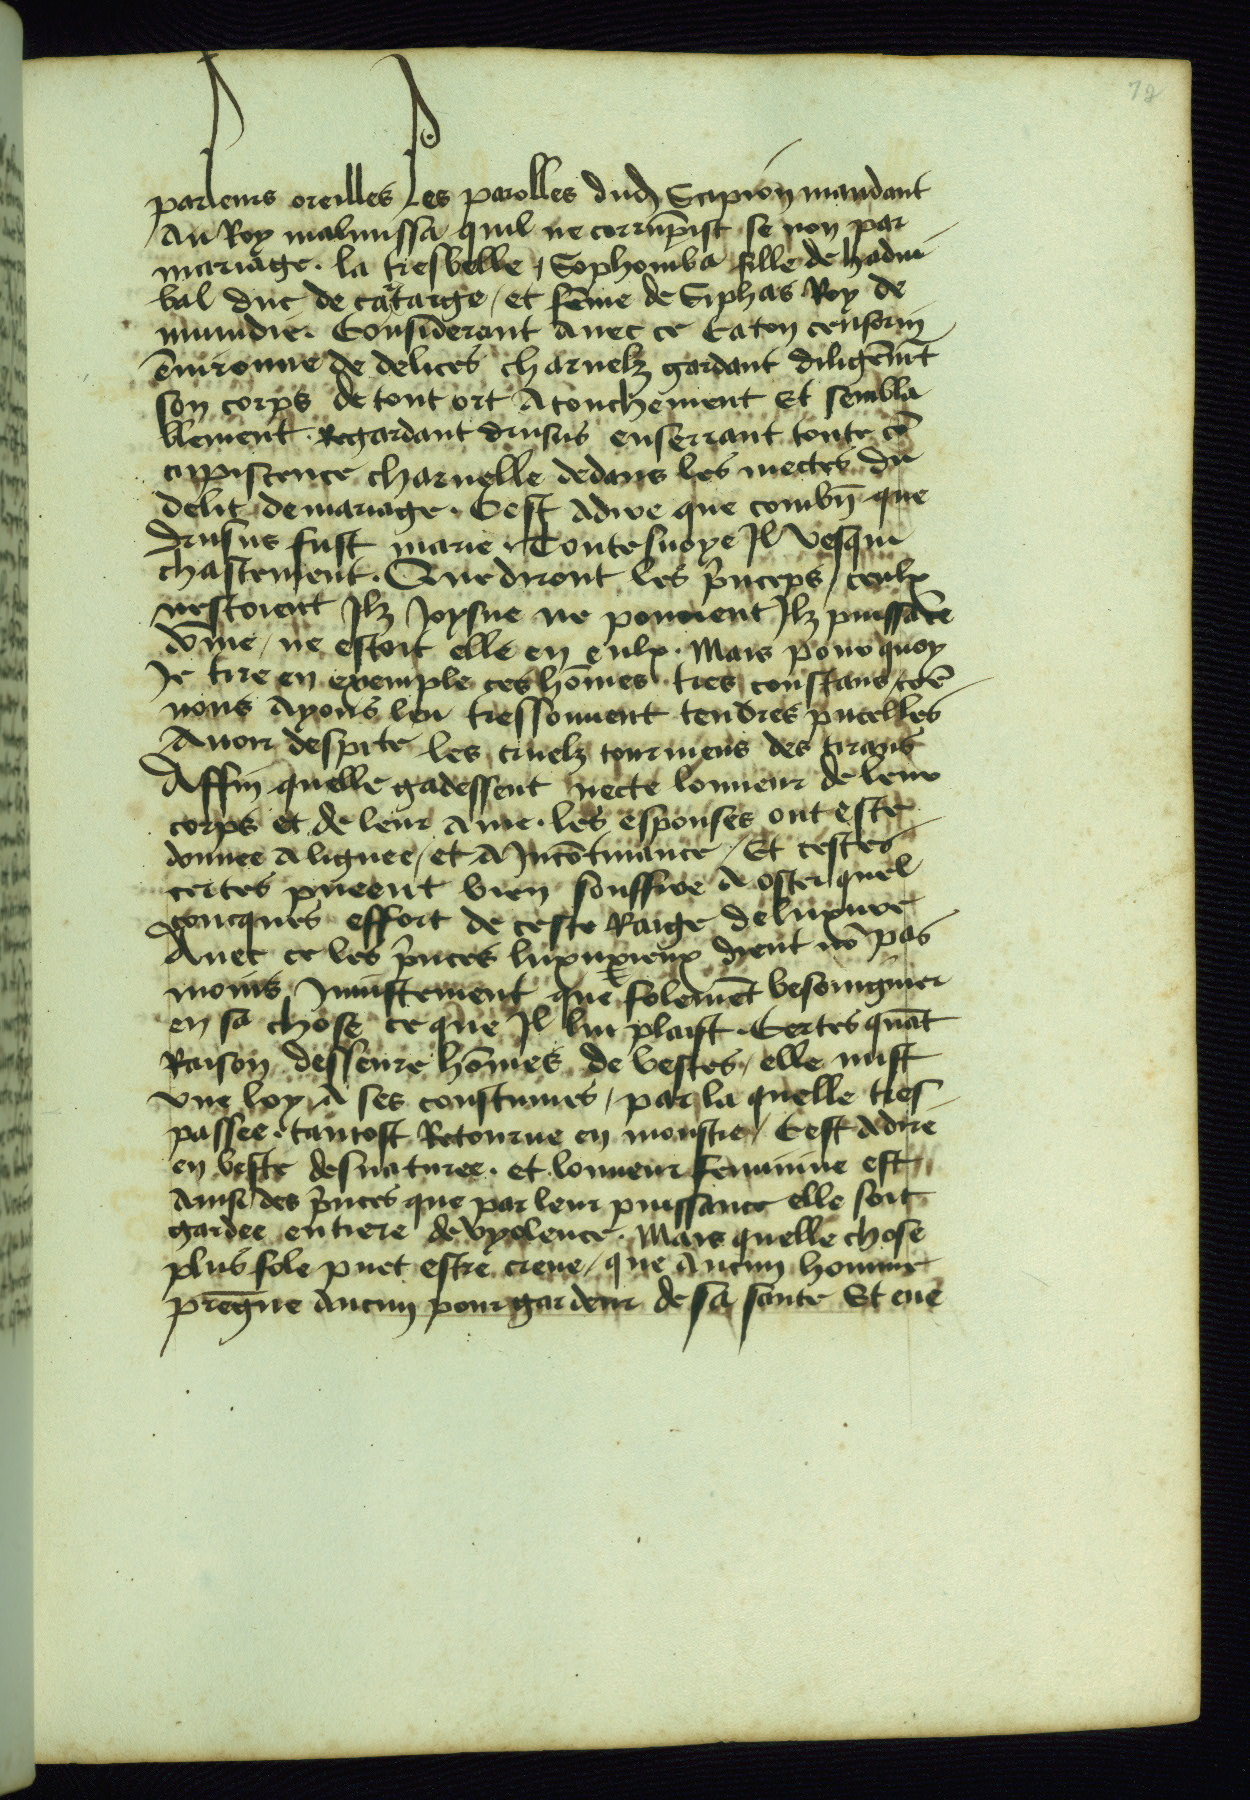 72
par leurs oreilles Les parolles dud Scipion mandant
Au Roy malmissa quil ne corrūpist se non par
mariage . la tresbelle / Sophoniba fille de hadru
bal duc de cartarge / et fēme de Siphas Roy de
numidie . Considerant avec ce Caton censorin
ēuironne de delices charnelz gardant diligēmēt
son corps de tout ort Atouchement Et sembla
blement . Regardant drusus enserrant toute cō
cupiscence charnelle dedans les mectes du
delit de mariage . Cest Adire que combn̄ que
drusus fust marie . Toutesuoye Jl vesqui
chastement . Que diront les p̄nceps / ceulx
nestoient Jlz Joysne ne pouoient Jlz puissāce
dōme / ne estoit elle en eulx . Mais pour quoy
Je tire en exemple ces hōmes tres constans / cōe
nous Ayons leu tressouuent tendres pucelles
Auoir despite les cruelz tourmens des tirans
Affin quelle gadessent necte lonneur de leur
corps et de leur Ame . les esponses ont este
donnee A lignee / et A Jncōtinance / Et cestes
certes pueent bien souffire de oster quel
concques effort de ceste Raige de luxure
Auec ce les p̄nces luxurieux dient nō pas
moins Jniustement que folemēt besoingnier
en sa chose ce que Jl luy plaist . Certes quāt
Raison desseure hōmes de bestes / elle mist
vne loy A ses coustumes / par la quelle tres
passee . tantost Retourne en monstre / Cest Adire
en beste desnaturee . et lonneur feminine est
Ainsi des p̄nces que par leur puissance elle soit
gardee entiere de vyolence . Mais quelle chose
plus fole puet estre creue / que Aucun homme
prēgne Aucun pour gardeur de sa sante Et cue